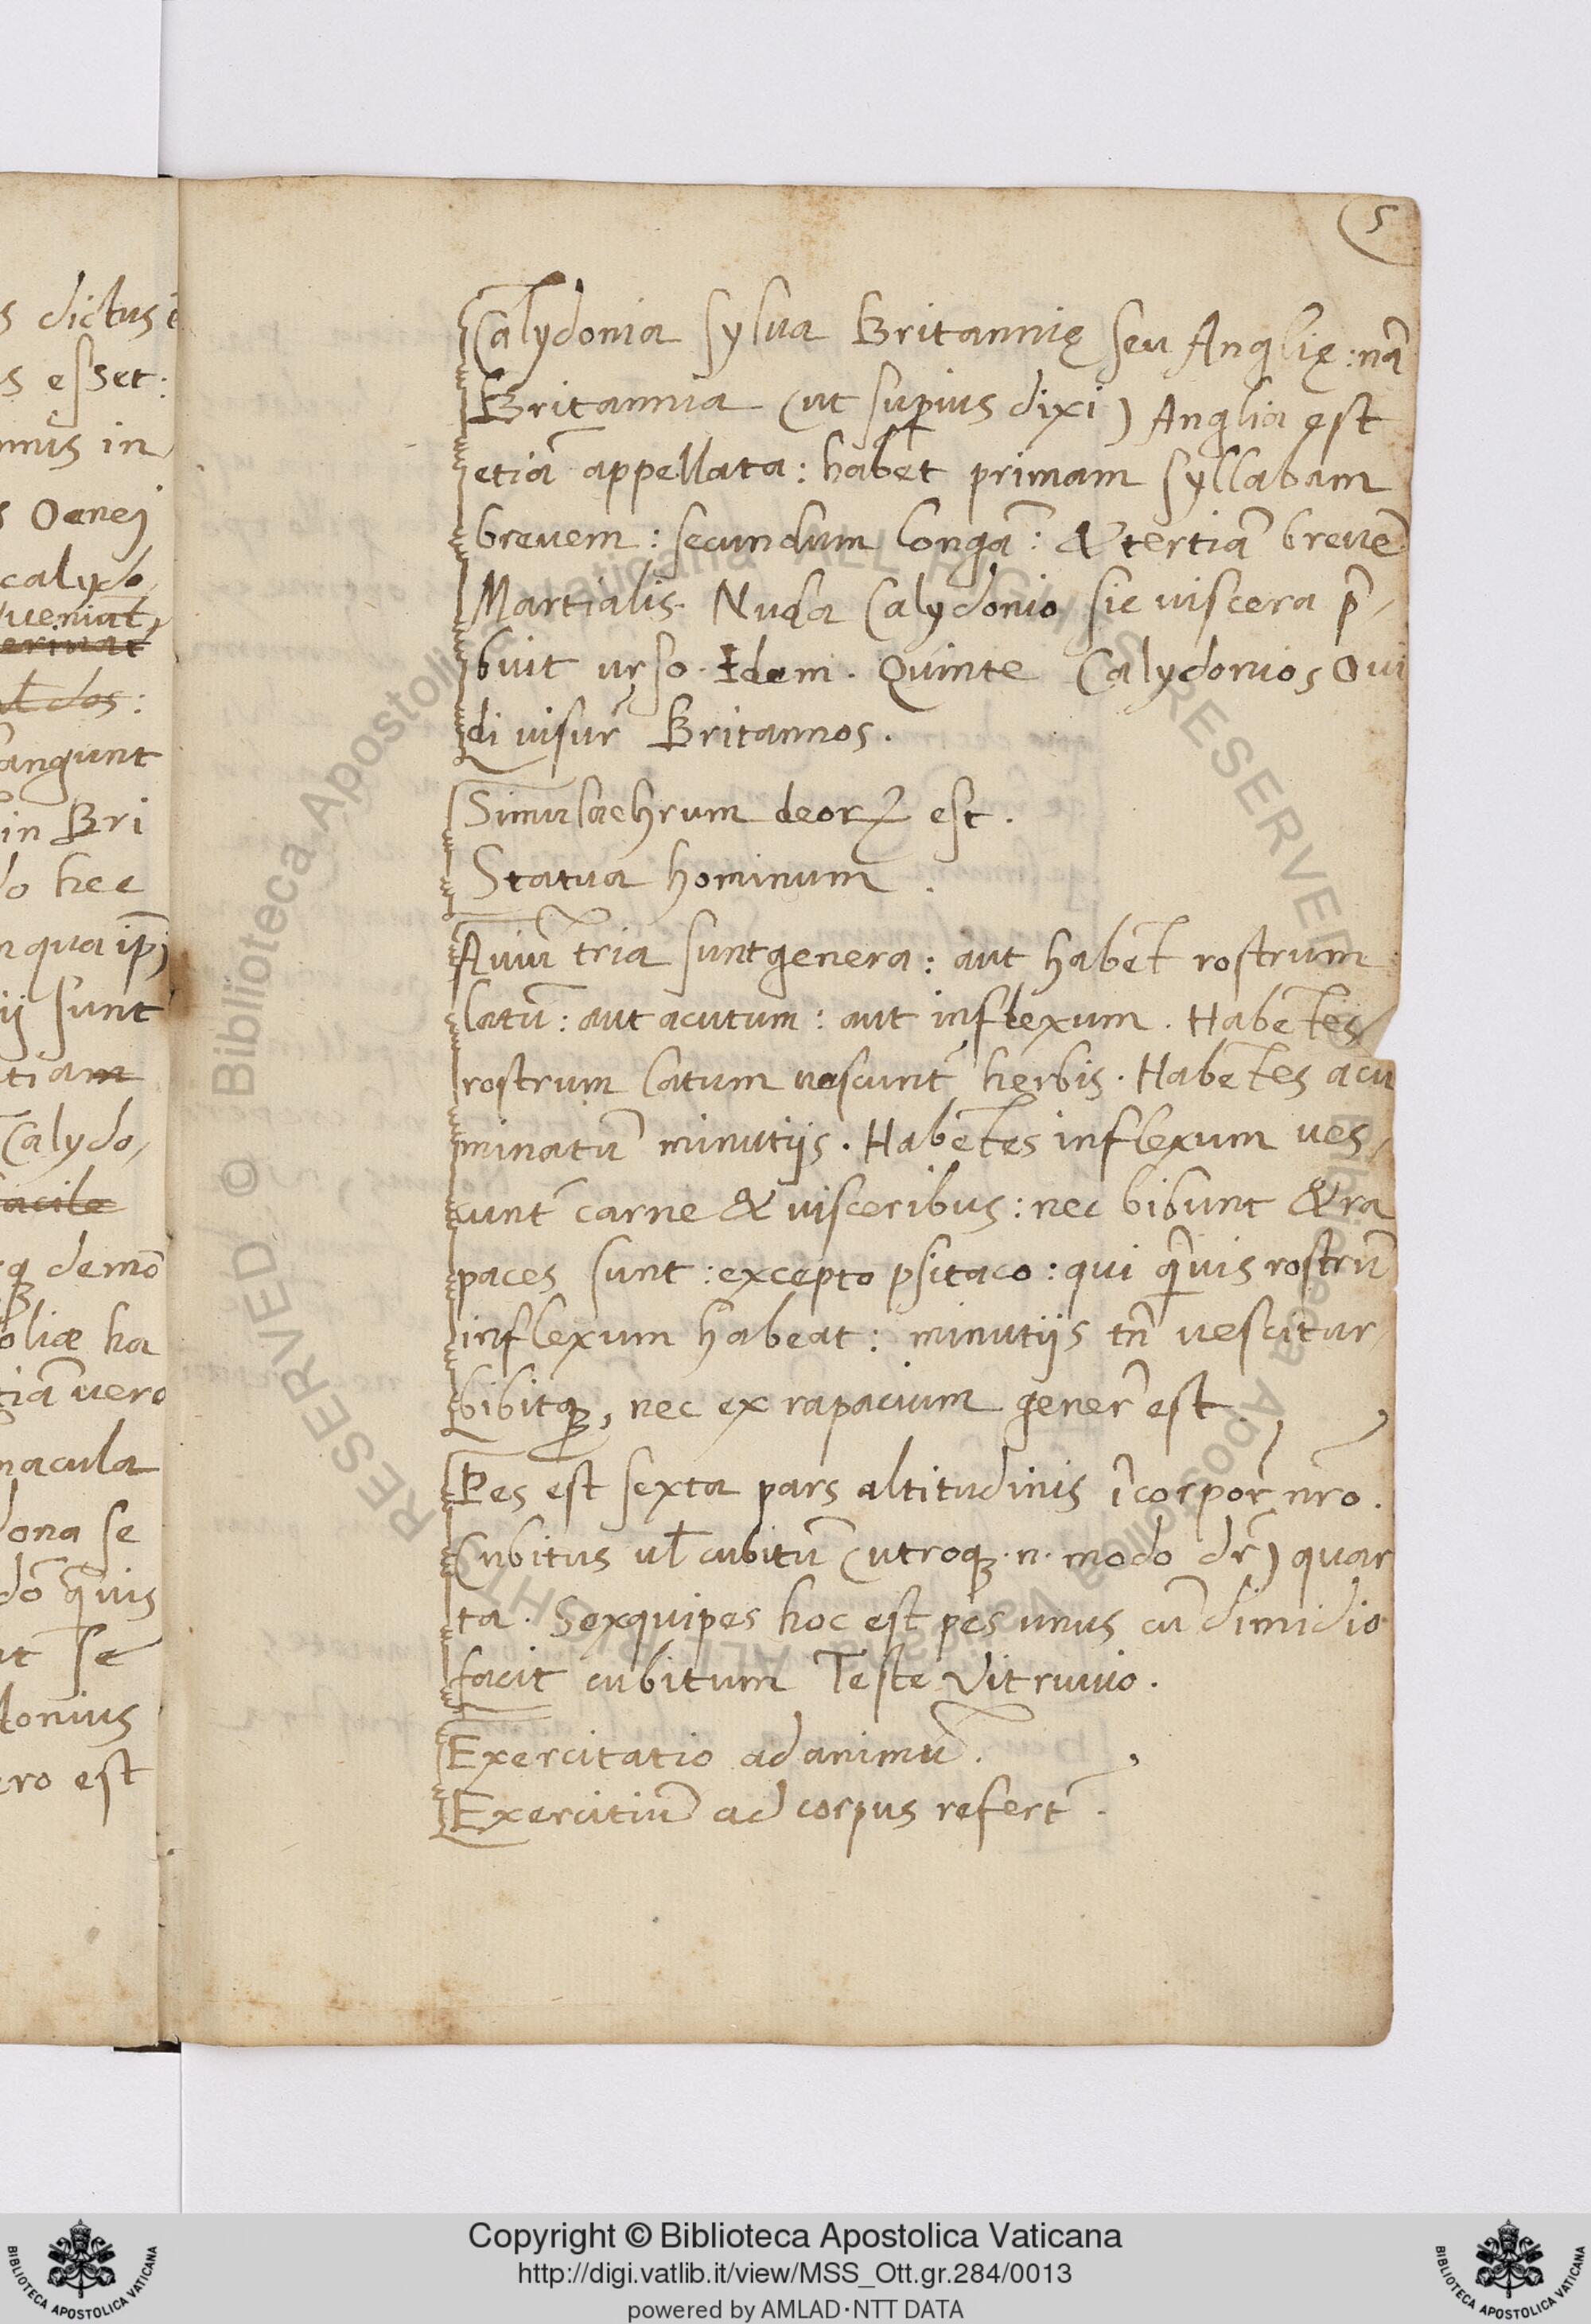 s dictus ē
s esset:
nnus in
s Oenej
calydo,
ueniat,
erinat
dos:
angunt
in Bri
do hec
n qua ip̄j
ij sunt
tiam
Calydo,
facile
q demō
oliæ ha
tiā vero
macula
dona se
dō q̄uis
ut se
donius
ero est
5
Calydonia sylua Britannię seu Anglię: nā
Britannia (ut suꝑius dixi) Anglia est
etiā appellata: habet primam syllabam
breuem: secundum longā: & tertiā breuē
Martialis. Nuda Calydonio sic uiscera p̄,
buit urso. Idem. Quinte Calydonios Oui
di uisur᷑ Britannos.
Simulachrum deorꝝ est.
Statua hominum.
Auiū tria sunt genera: aut habēt rostrum
latū: aut acutum: aut inflexum. Habētes
rostrum latum uescunt᷑ herbis. Habētes acu
minatū minutijs. Habētes inflexum ues,
cunt᷑ carne & uisceribus: nec bibunt & ra
paces sunt: excepto psitaco: qui q̄uis rostrū
inflexum habeat: minutijs tn̄ uescitur
bibitqꝫ, nec ex rapacium gener᷑ est.
Pes est sexta pars altitudinis ī corpor᷑ nr̄o.
Cubitus ul̄ cubitū (utroqꝫ .n. modo dr᷑) quar
ta. Sexquipes hoc est pes unus cū dimidio
facit cubitum Teste Vitruuio.
Exercitatio ad animū.
Exercitiū ad corpus refert᷑.
© Biblioteca Apostolica Vaticana ALL RIGHTS RESERVED
© Biblioteca Apostolica Vaticana ALL RIGHTS RESERVED
BIBLIOTECA APOSTOLICA VATICANA
Copyright © Biblioteca Apostolica Vaticana
http://digi.vatlib.it/view/MSS_Ott.gr.284/0013
powered by AMLAD·NTT DATA
BIBLIOTECA APOSTOLICA VATICANA